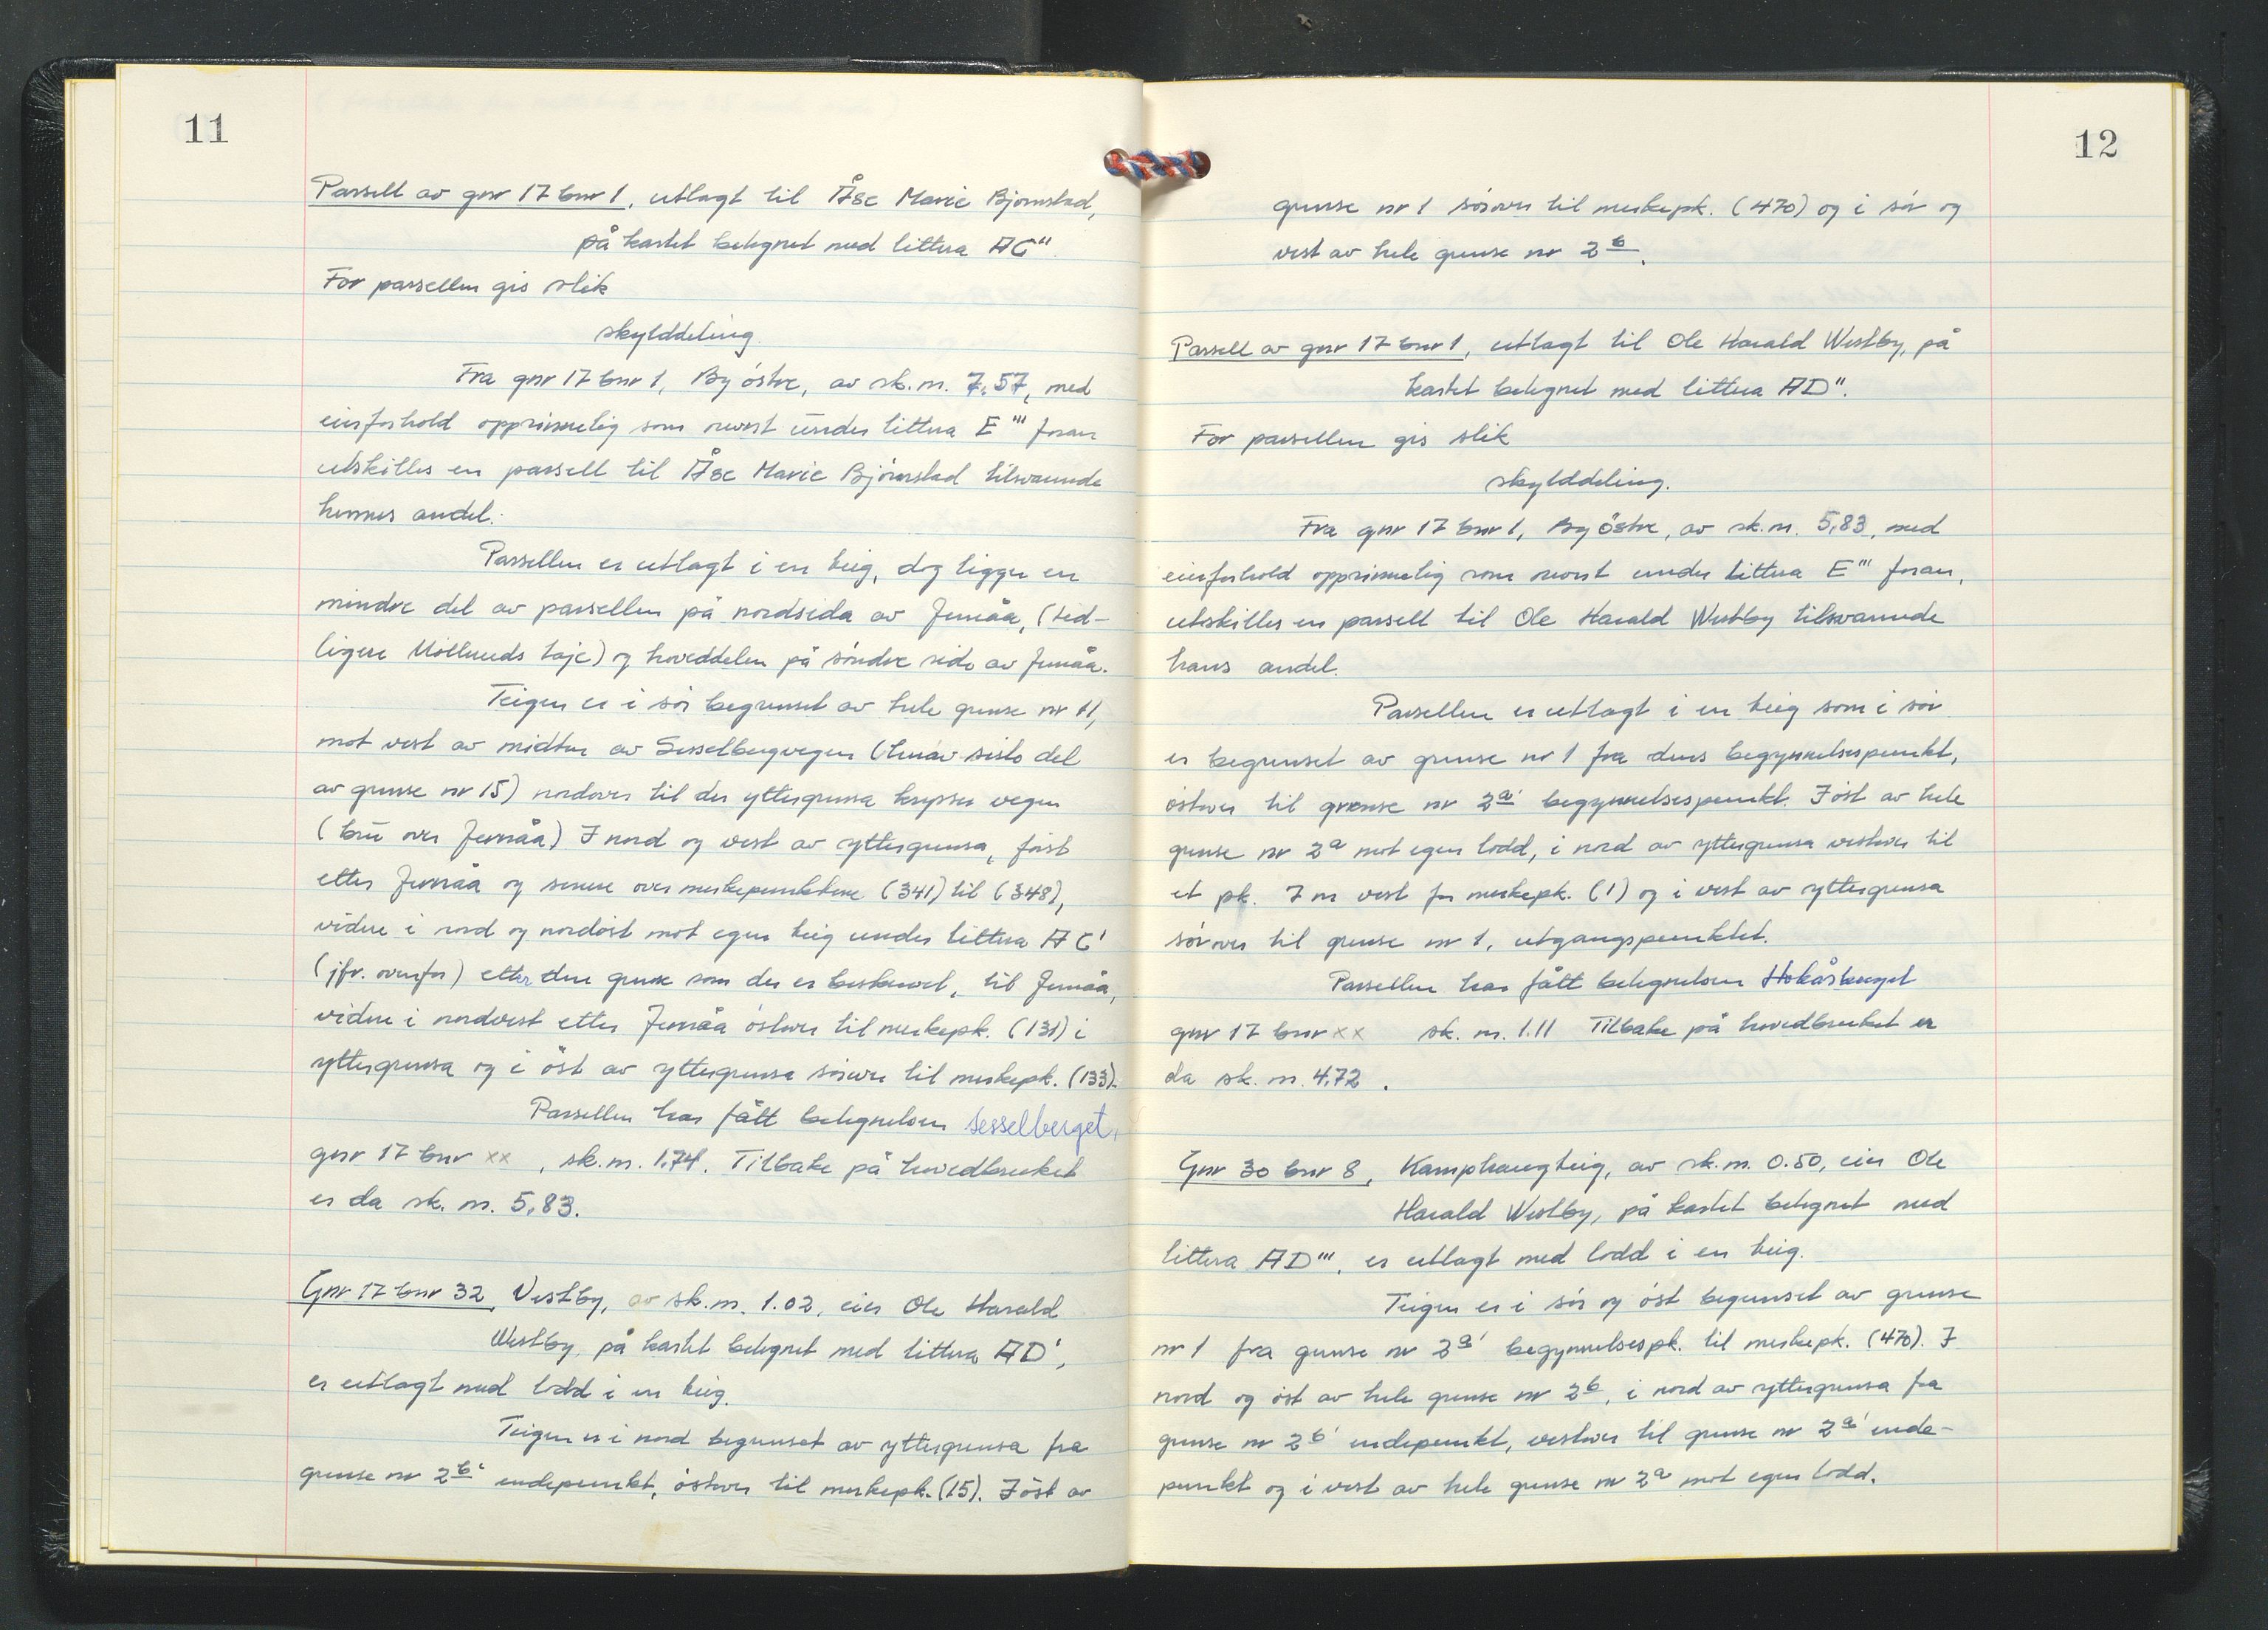 11
Parsell av gnr 17 bnr 1, utlagt til Åse Marie Bjørnstad,
på kartet betegnet med littera AC"
For parsellen gis slik
skylddeling.
Fra gnr 17 bnr 1, By østre, av sk.m. 7,57, med
eierforhold opprinnelig som nevnt under littera E''' foran
utskilles en parsell til Åse Marie Bjørnstad tilsvarende
hennes andel.
Parsellen er utlagt i en teig, dog ligger en
mindre del av parsellen på nordsida av Jernåa, (tid-
ligere Mølleruds løje) og hoveddelen på søndre side av Jernåa.
Teigen er i sør begrenset av hele grense nr 11,
mot vest av midten av Sesselbergvegen (herav siste del
av grense nr 15) nordover til der yttergrensa krysser vegen
(bru over Jernåa) I nord og vest av yttergrensa, først
etter Jernåa og senere over merkepunktene (341) til (348),
videre i nord og nordøst mot egen teig under littera AC'
(jfr. ovenfor) etter den grense som der er beskrevet, til Jernåa,
videre i nordvest etter Jernåa østover til merkepk. (131) i
yttergrensa og i øst av yttergrensa sørover til merkepk. (133).
Parsellen har fått betegnelsen Sesselberget,
gnr 17 bnr xx , sk.m. 1.74. Tilbake på hovedbruket
er da sk. m. 5,83.
Gnr 17 bnr 32, Vestby, av sk.m. 1.02, eier Ole Harald
Westby, på kartet betegnet med littera AD',
er utlagt med lodd i en teig.
Teigen er i nord begrenset av yttergrensa fra
grense nr 2b' endepunkt, østover til merkepk. (15). I øst av
12
grense nr 1 sørover til merkepk. (470) og i sør og
vest av hele grense nr 2b.
Parsell av gnr 17 bnr 1, utlagt til Ole Harald Westby, på
kartet betegnet med littera AD".
For parsellen gis slik
skylddeling.
Fra gnr 17 bnr 1, By østre, av sk.m. 5,83, med
eierforhold opprinnelig som nevnt under littera E''' foran,
utskilles en parsell til Ole Harald Westby tilsvarende
hans andel.
Parsellen er utlagt i en teig som i sør
er begrenset av grense nr 1 fra dens begynnelsespunkt,
østover til grense nr 2a' begynnelsespunkt. I øst av hele
grense nr 2a mot egen lodd, i nord av yttergrensa vestover til
et pk. 7 m vest for merkepk. (1) og i vest av yttergrensa
sørover til grense nr 1, utgangspunktet.
Parsellen har fått betegnelsen Hokåsberget
gnr 17 bnr xx sk. m. 1.11 Tilbake på hovedbruket er
da sk. m. 4,72 .
Gnr 30 bnr 8, Kamphaugteig, av sk.m. 0.50, eier Ole
Harald Westby, på kartet betegnet med
littera AD''', er utlagt med lodd i en teig.
Teigen er i sør og øst begrenset av grense
nr 1 fra grense nr 2a' begynnelsespk. til merkepk. (470). I
nord og øst av hele grense nr 2b, i nord av yttergrensa fra
grense nr 2b' endepunkt, vestover til grense nr 2a' ende-
punkt og i vest av hele grense nr 2a mot egen lodd.